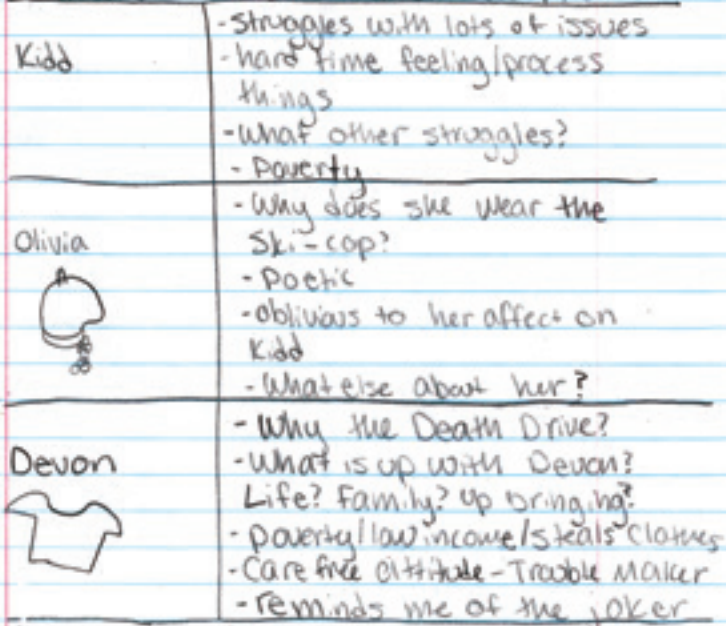 Kidd
-struggles with lots of issues
-hard time feeling/process
things
-what other struggles?
-Poverty
Olivia
-Why does she wear the
Ski-cap?
-Poetic
-oblivious to her affect on
Kidd
-What else about her?
Devon
-Why the Death Drive?
-What is up with Devon?
Life? Family? Up bringing?
-Poverty/low income/steals clothes
-Care free attitude-Trouble Maker
-reminds me of the joker